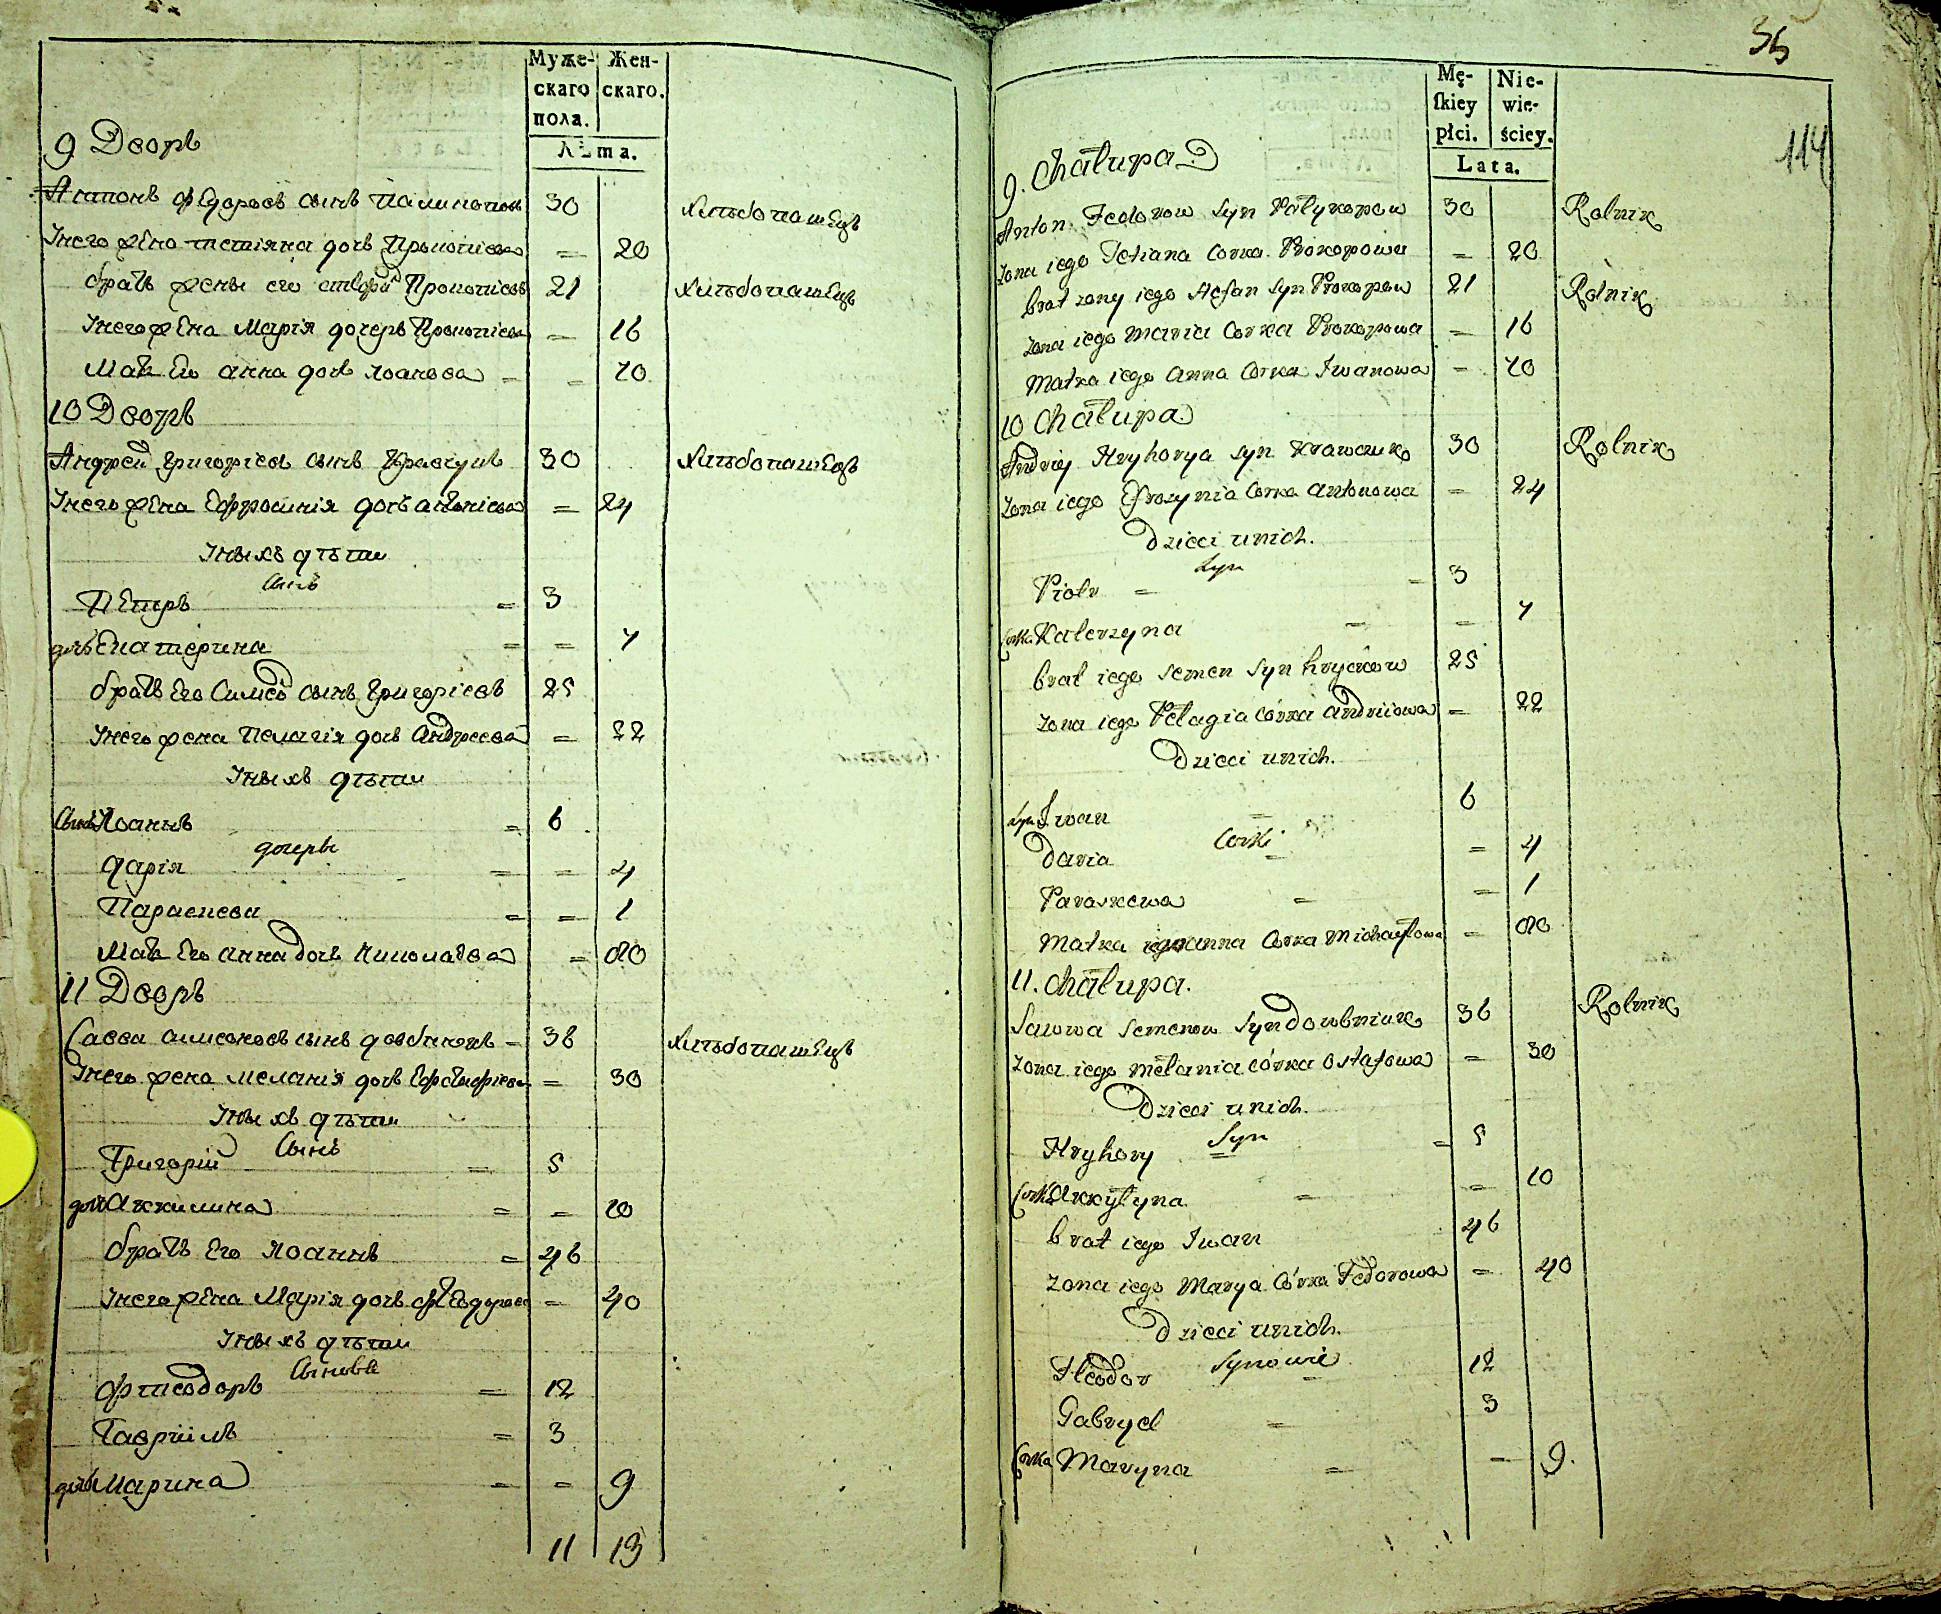 Муже- Жен-
скаго скаго.
пола.
Лѣта.
9 Дворъ
Антонъ Федоровъ сынъ 30 Хлѣбопашецъ
Унего жена татіяна дочь Прокопіева = 20
братъ жены его Прокопіевъ 21 Хлѣбопашецъ
Унего жена Марія дочерь Прокопіева = 16
Мать Его анна дочь Іоанова = = 70
10 Дворъ
Андрей Григорієвъ сынъ Кравчукъ 30 Хлѣбопашецъ
Унего жена Ефросинія дочь антоніева = 24
Унихъ дѣти
сынъ
Петръ = 3
дочь Екатерина = = 7
братъ Его Симеѡ сынъ Григорієвъ 25
Унего жена Пелагія дочь Андреева = 22
Унихъ дѣти
Сынъ Іоаннъ = 6
дочеры
дарія = = 4
Параскева = = 1
Мать Его анна дочь = 80
11 Дворъ
Савва симеоновъ сынъ довбнюкъ = 36 Хлѣбопашецъ
Унего жена меланія дочь Евстафієва = 30
Унихъ дѣти
Сынъ
Григорій = 5
дочь Аккилина = = 10
братъ Его Іоаннъ = 46
Унего жена Марія дочь = 40
Унихъ дѣти
Сынове
Ѳтеодоръ = 12
Гавріилъ = 3
дочь Марина = = 9
11 13
35
114
Mę- Nie-
skiey wie-
płci. ściey.
Lata.
9. Chałupa
Anton Fedorow syn Pałykopow 30 Rolnik
zona iego Tetiana Corka Prokopowa = 20
brat zony iego Stefan syn Prokopow 21 Rolnik
zona iego Maria Corka Prokopowa = 16
Matka iego Anna Corka Iwanowa = 70
10 Chałupa
Andriy Hryhorya syn Krawczuk 30 Rolnik
zona iego Efrozynia Corka Antonowa = 24
Dzieci unich.
Syn
Piotr = = 3
Corka Katerzyna = = 7
brat iego Semen syn hrycków 25
zona iego Pelagia córka andriiowa = 22
Dzieci unich.
syn Iwan = 6
Corki
Daria = = 4
Paraskewa = = 1
Matka iego anna Corka Michayłowa = 80
11. Chałupa.
Sawwa Semenow Syn Dowbniuk 36 Rolnik
zona iego Mełania córka ostafowa = 30
Dzieci unich.
Syn
Hryhory = = 5
Corka Akkyłyna = = 10
brat iego Iwan 46
zona iego Marya Córka Fedorowa = 40
Dzieci unich.
Synowie
Fteodor = 12
Gabryel = 3
Corka Maryna = = 9.